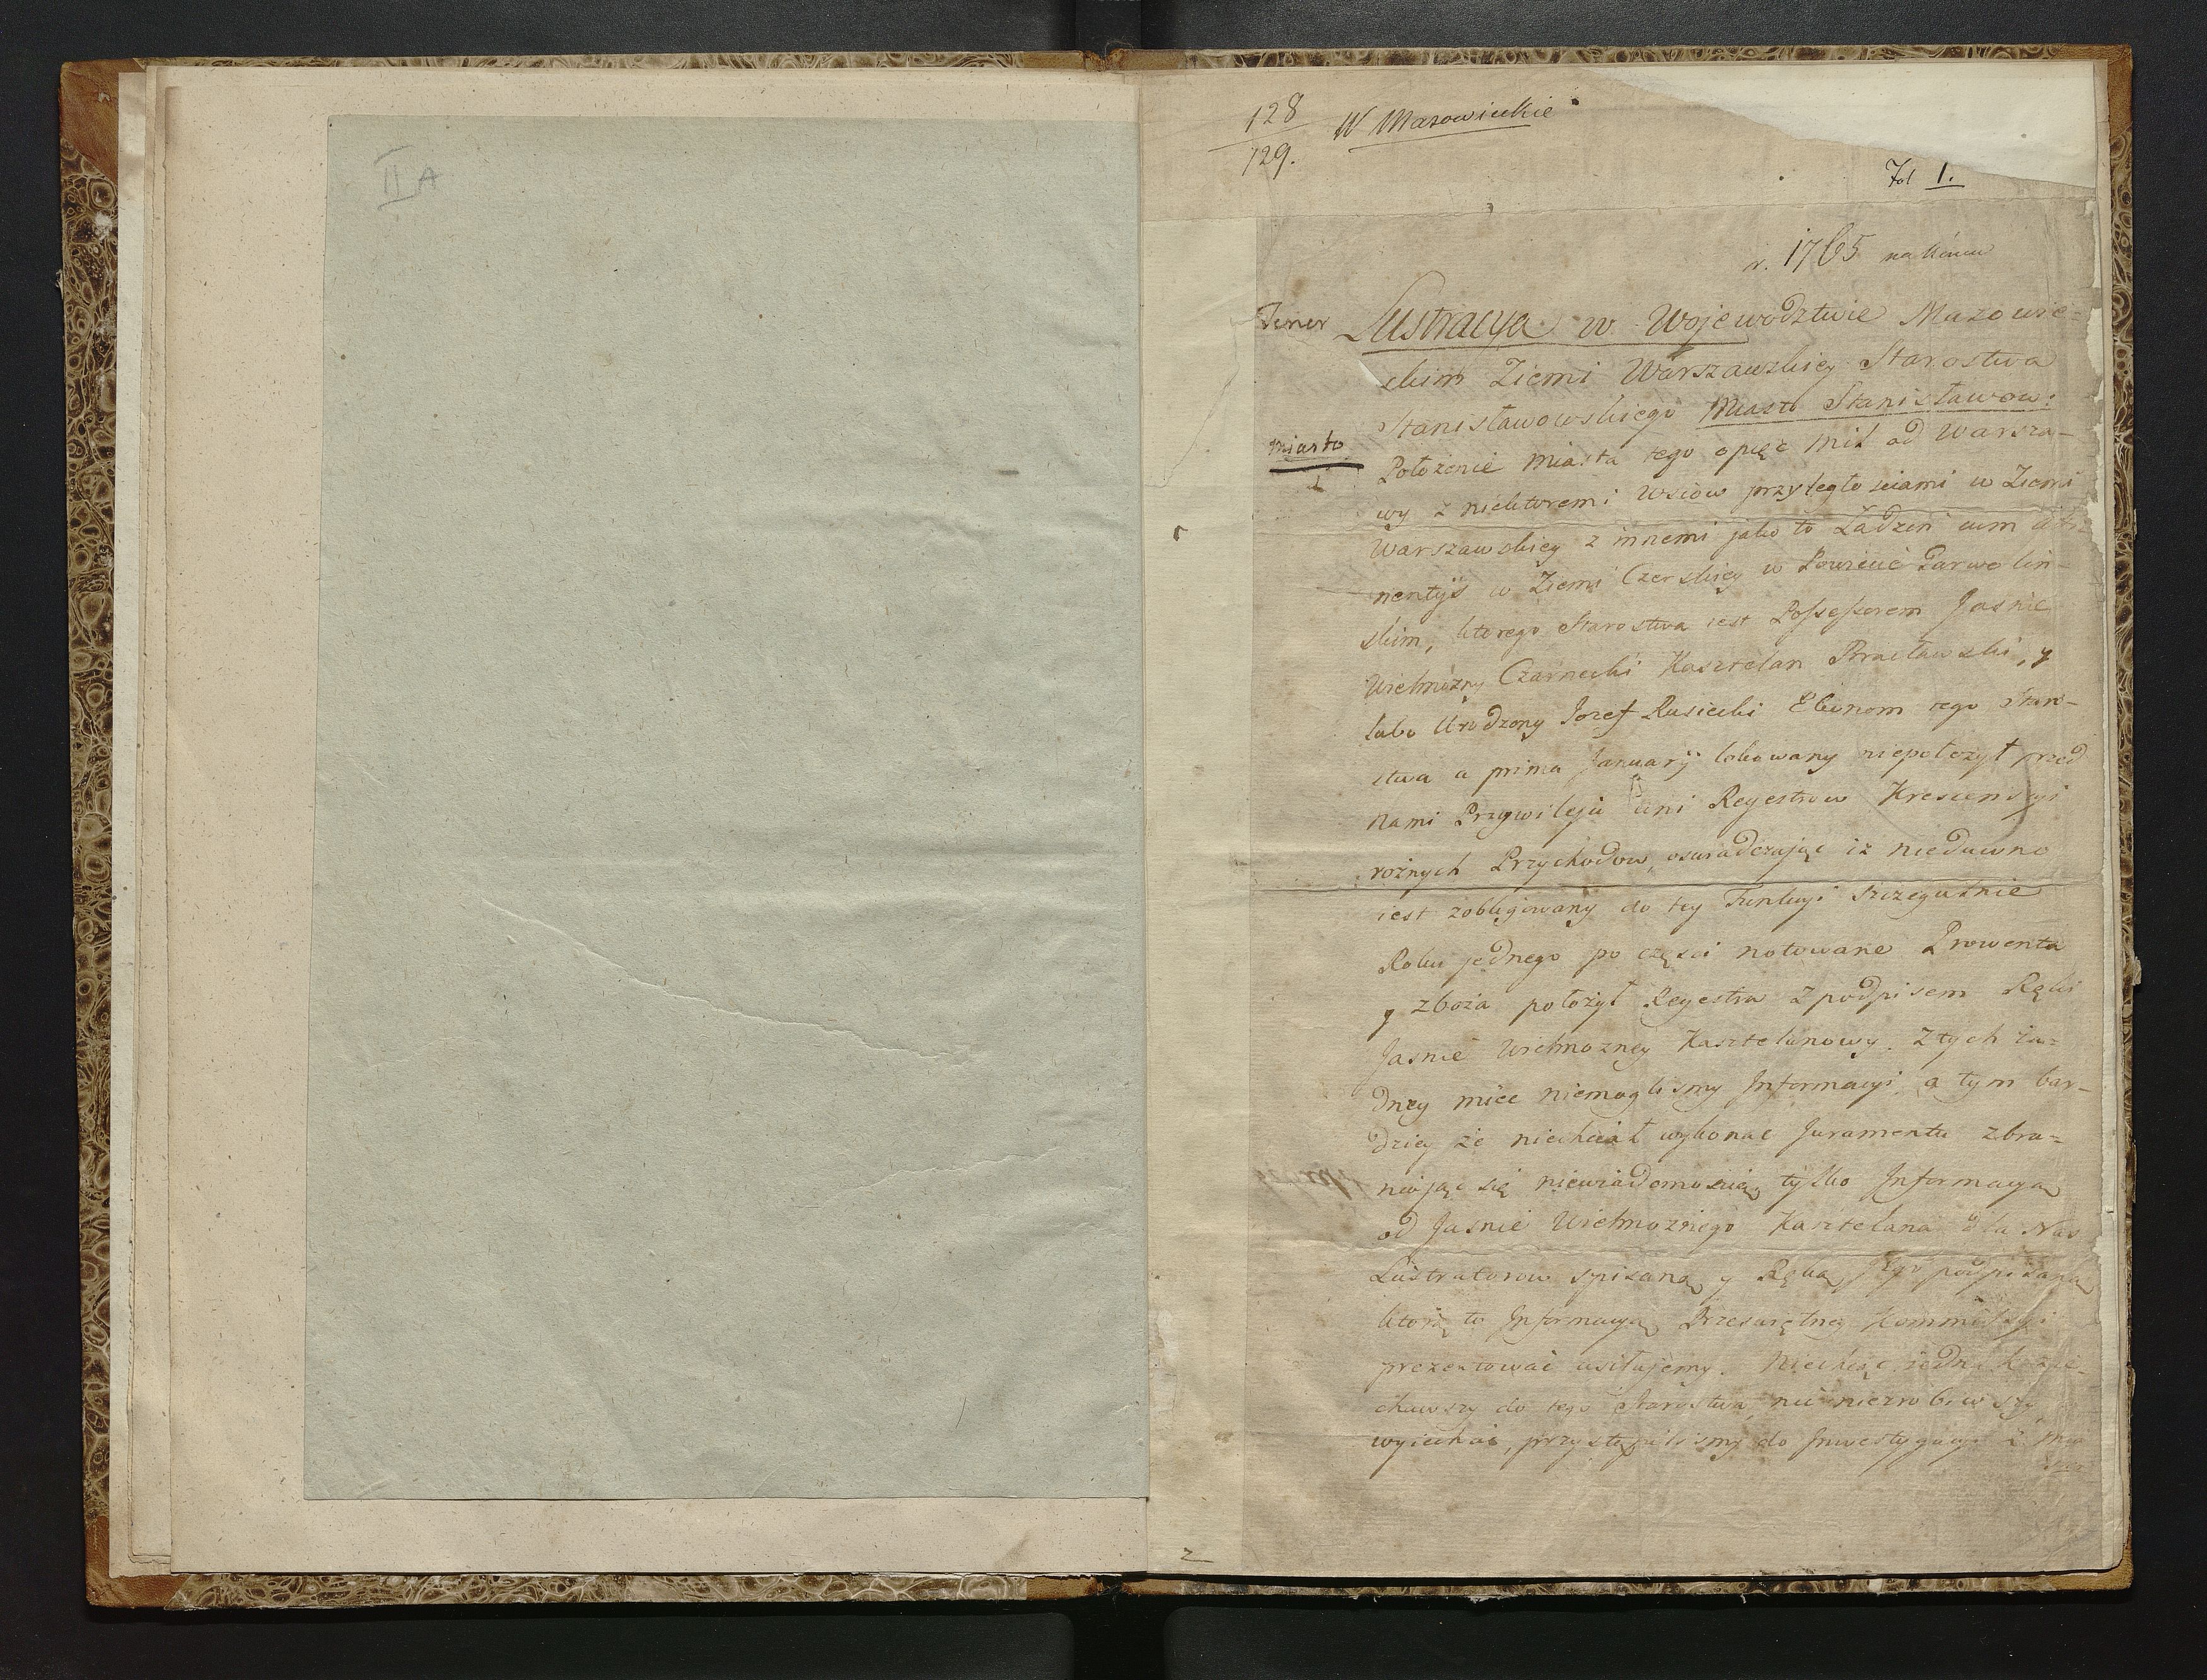 II A
128
129.
W Mazowieckie
Fol 1.
r. 1765 na końcu
Tenor
Lustracya w Wojewodztwie Mazowie=
ckim Ziemi Warszawskiey Starostwa
Stanisławowskiego Miasto Stanisławow:
Miasto
1
Położenie Miasta tego o pięc Mil od Warsza-
wy z niektoremi Wsiow przyległosciami w Ziemi
Warszawskiey z innemi jako to Ładzeń cum atti-
nentijs w Ziemi Czerskiey w Powiecie Garwolin-
skim, ktorego Starostwa iest Possessorem Jasnie
Wielmozny Czarnecki Kasztelan Bracławski, y
lubo Urodzony Jozef Rusiecki Ekonom tego Staro-
stwa a prima Januarij lokowany niepołozył przed
Nami Przywileju ani Regestrow Krescencyi
rożnych Przychodow, oswiadczając iż niedawno
iest zobligowany do tey Funkcyi szczegulnie
Roku jednego po częsci notowane Prowenta
y zboża położył Regestra z podpisem Ręki
Jasnie Wielmozney Kasztelanowy. Z tych ża=
dney miec niemoglismy Informacyi a tym bar-
dziey że niechciał wykonac Juramentu zbra=
niając się niewiadomoscią, tylko Informacyą
od Jasnie Wielmoznego Kasztelana dla Nas
Lustratorow spisaną y Ręką Jego podpisaną
ktorą to Informacyą Przeswiętney Kommissyi
prezentować usiłujemy. Niechcąc iednak zie-
chawszy do tego Starostwa, nic niezrobiwszy
wyiechac, przystąpilismy do Inwestygacyi z
2